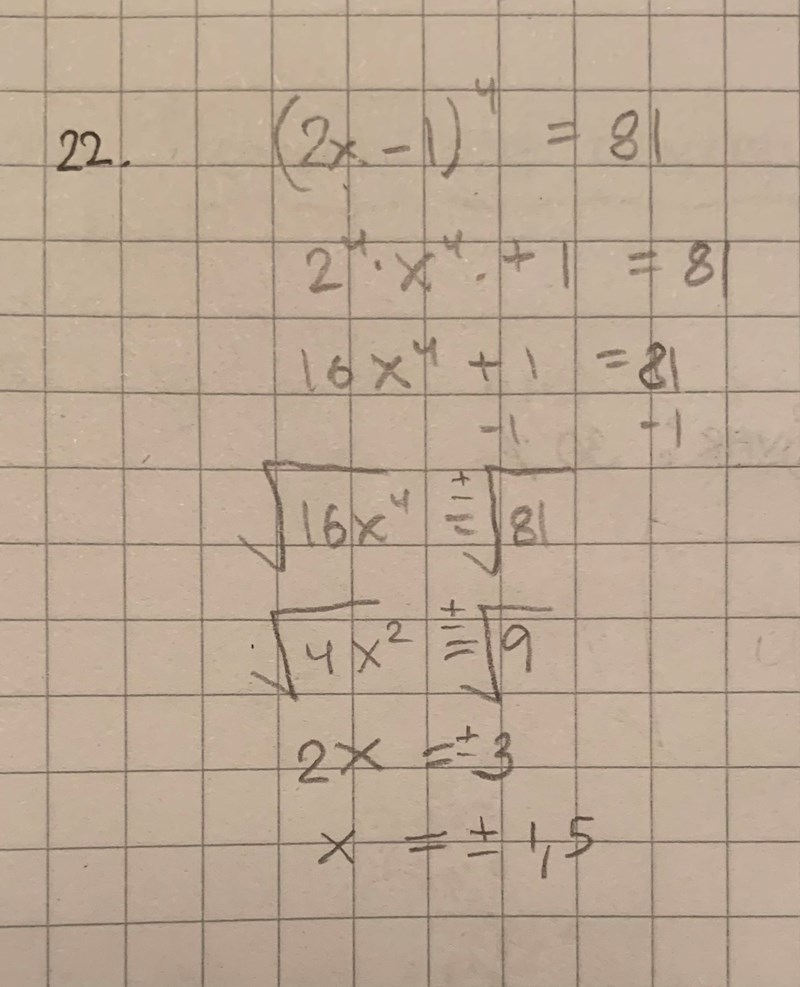 22. (2x - 1)⁴ = 81
2⁴ · x⁴ · + 1 = 81
16x⁴ + 1 = 81
-1 -1
√16x⁴ = ±√81
√4x² = ±√9
2x = ±3
x = ± 1,5